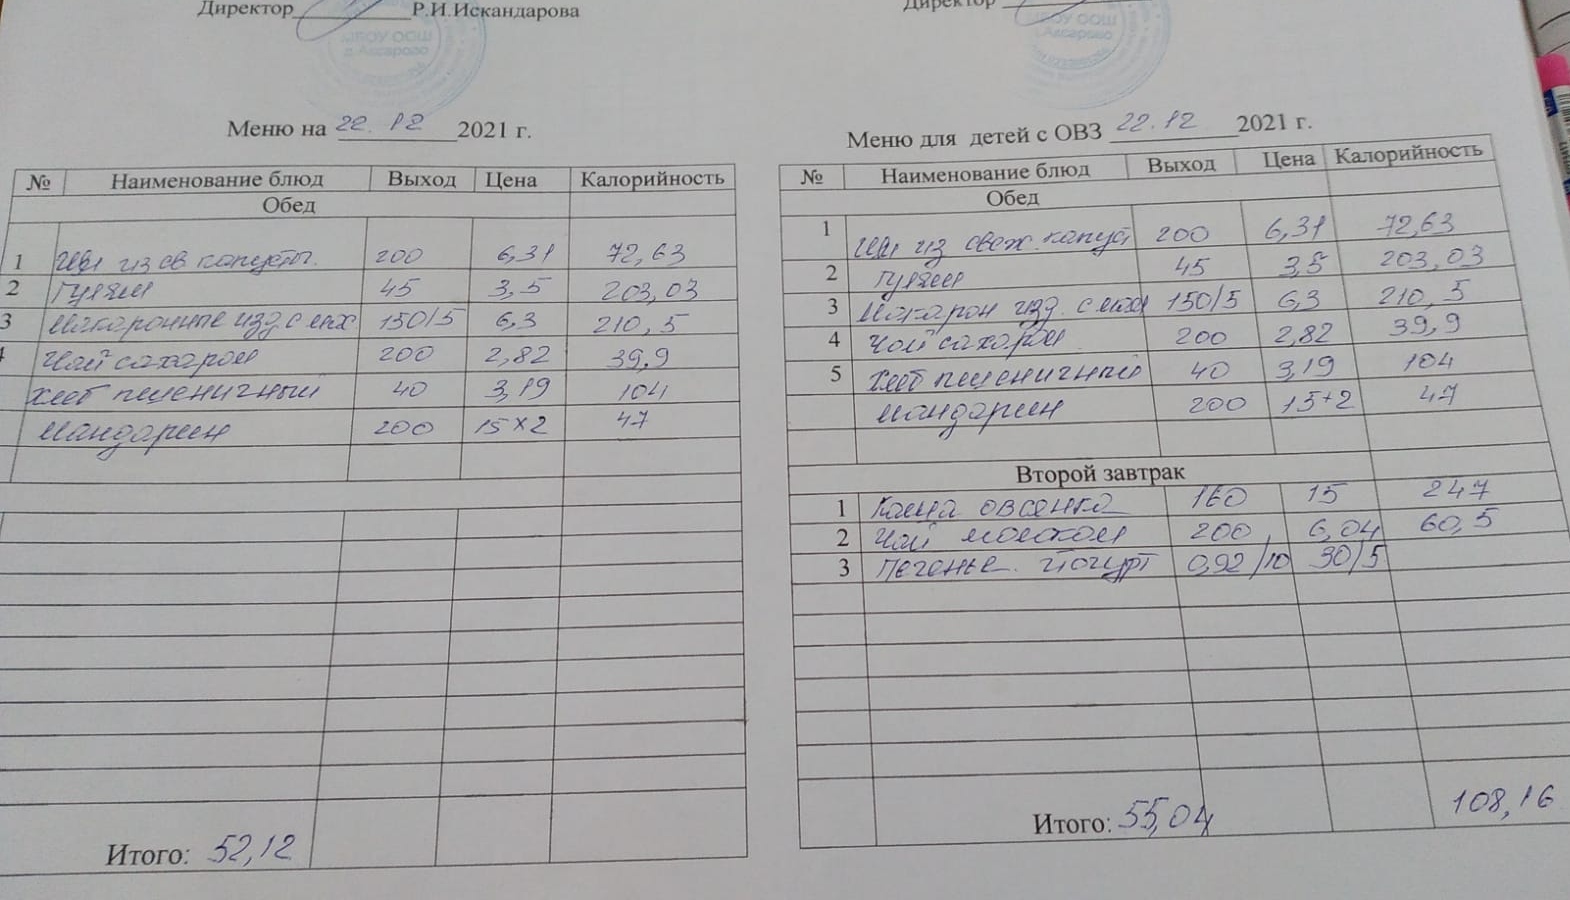 Директор__________Р.И.Искандарова
МБОУ ООШ
д.Аксарово
Меню на 22.12 2021 г.
№ Наименование блюд Выход Цена Калорийность
Обед
1 Щи из св капусты. 200 6,31 72,63
2 Гуляш 45 3,5 203,03
3 Макаронные изд с мах 150/5 6,3 210,5
4 Чай сахаром 200 2,82 39,9
Хлеб пшеничный 40 3,19 104
Мандарин 200 15×2 47
Итого: 52,12
Директор
МБОУ ООШ
д.Аксарово
Меню для детей с ОВЗ 22.12 2021 г.
№ Наименование блюд Выход Цена Калорийность
Обед
1 Щи из свеж. капуст 200 6,31 72,63
2 Гуляш 45 3,5 203,03
3 Макарон изд. с мах 150/5 6,3 210,5
4 Чай сахаром 200 2,82 39,9
5 Хлеб пшеничный 40 3,19 104
Мандарин 200 15+2 47
Второй завтрак
1 Каша овсянка 160 15 247
2 Чай молоком 200 6,04 60,5
3 Печенье. Йогурт 0,92/10 30/5
Итого: 55,04 108,16